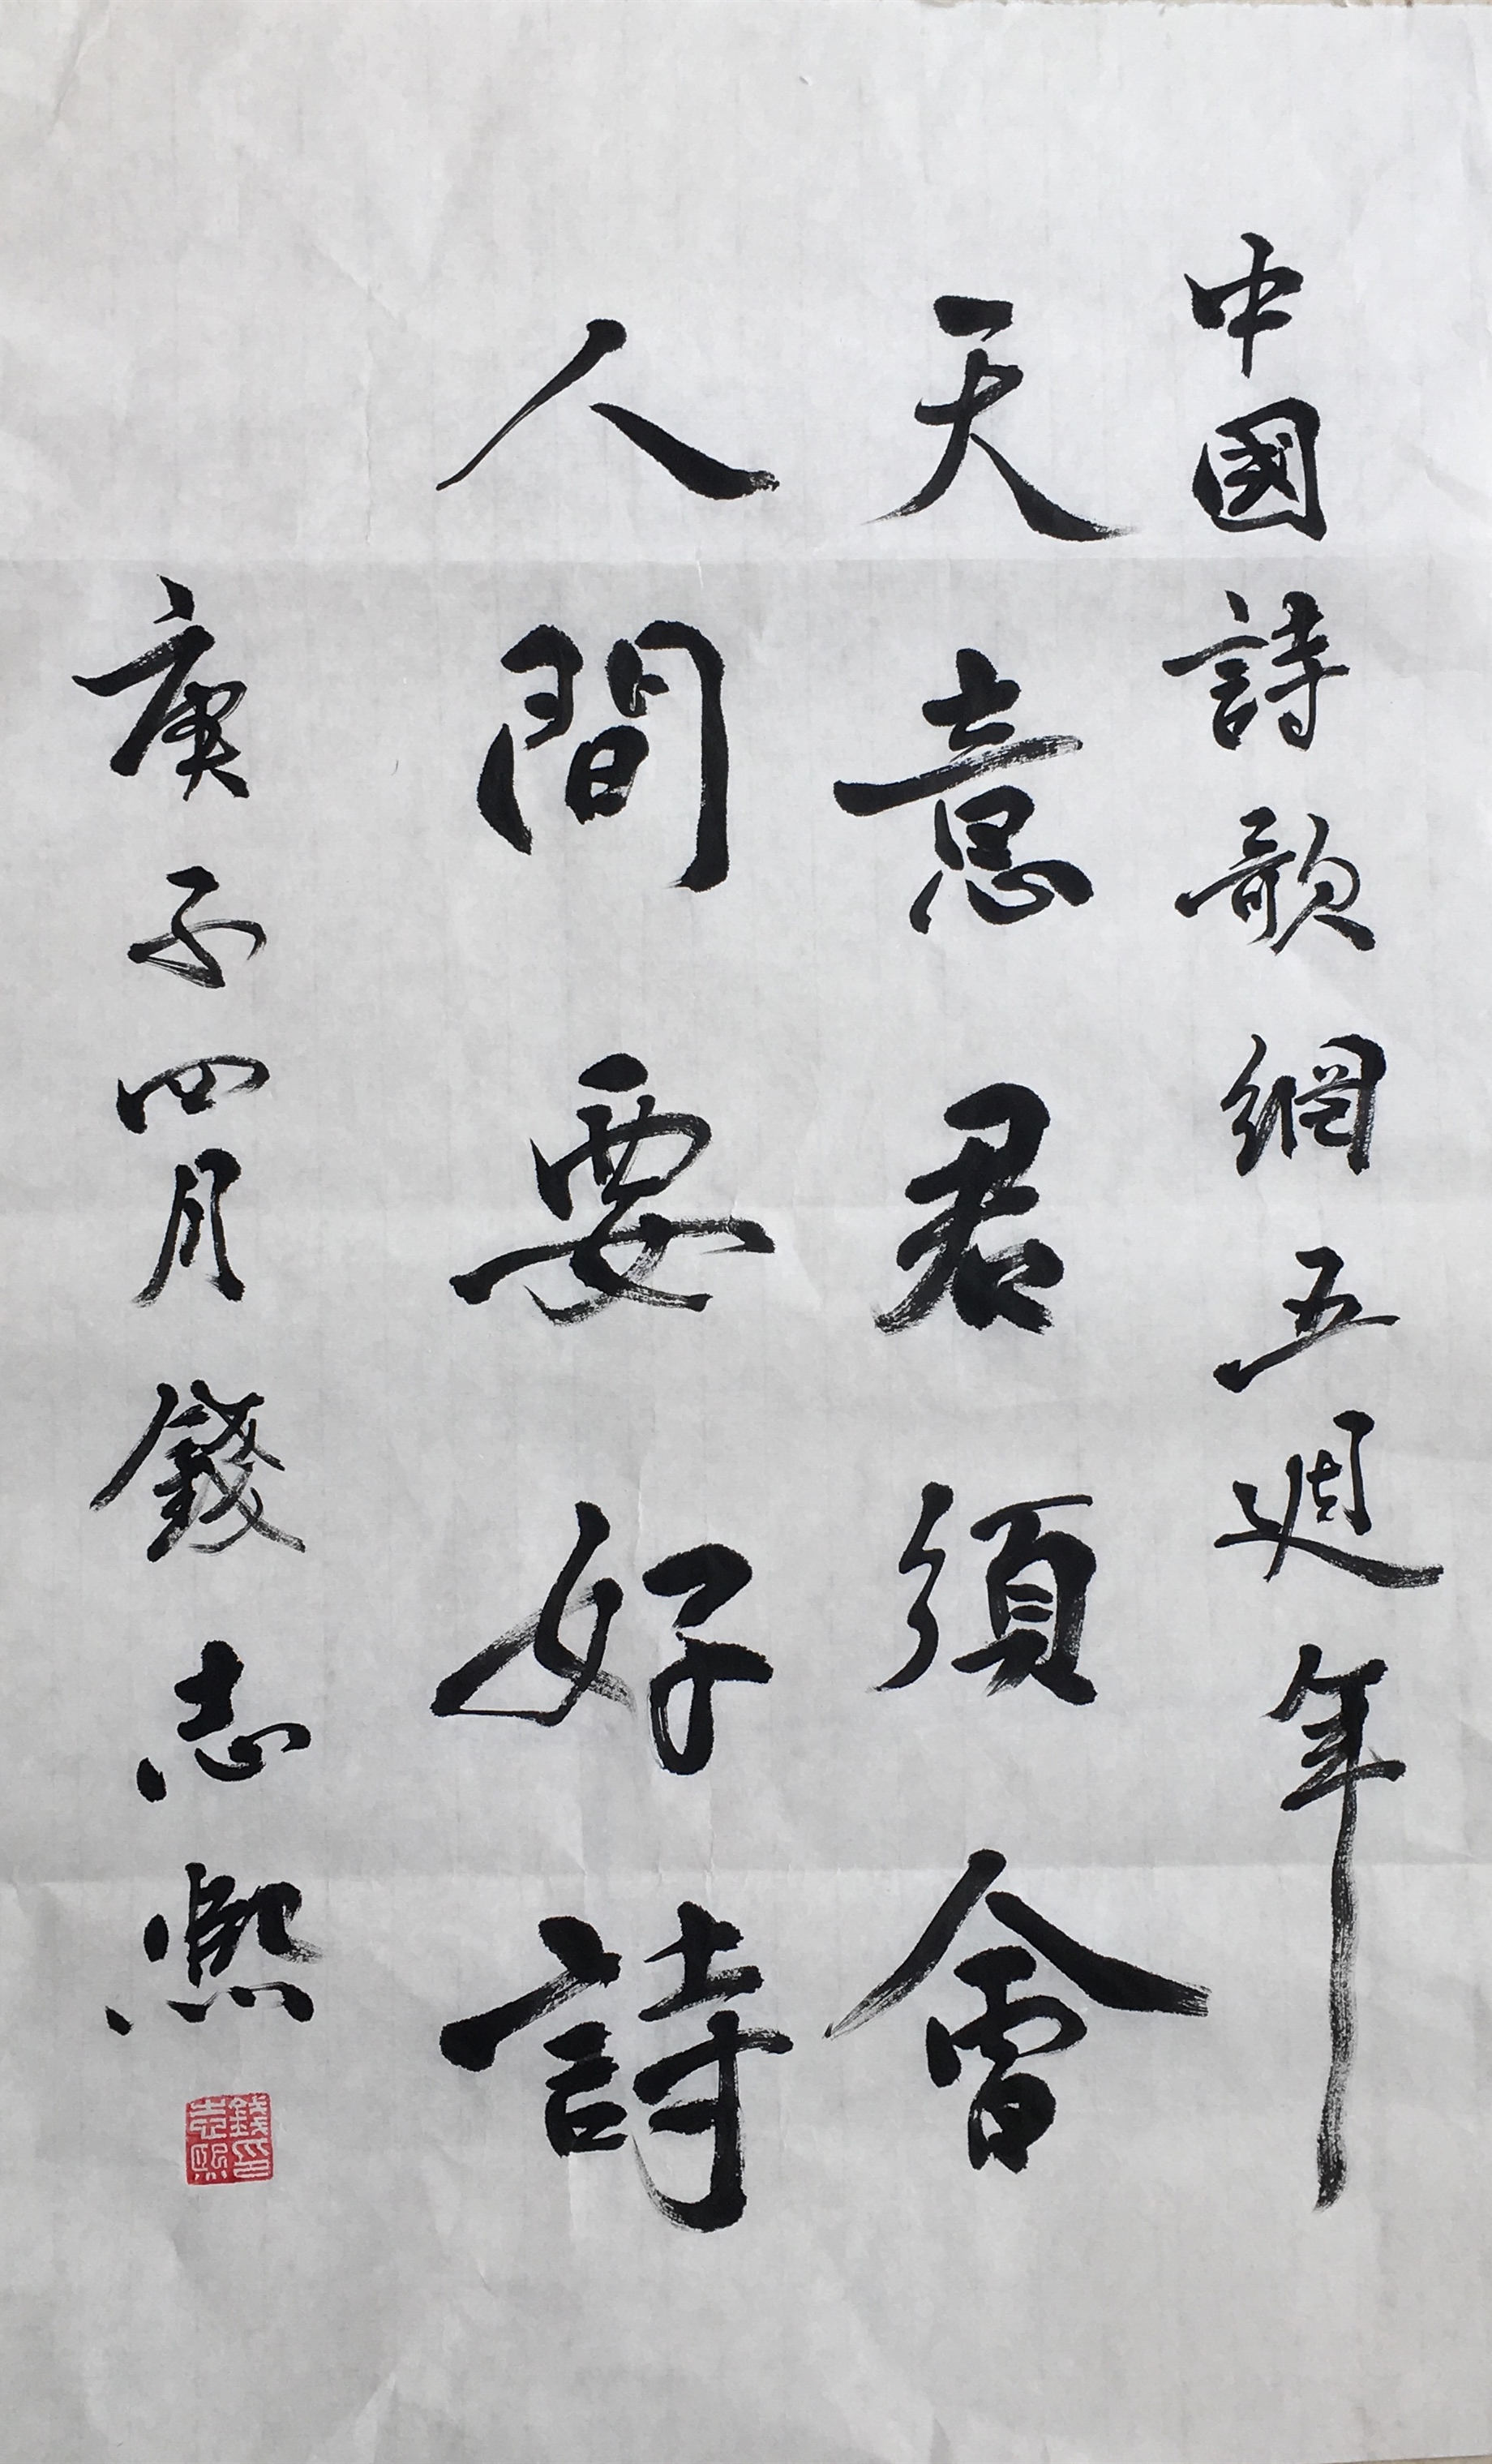 中國詩歌網五週年
天意君須會
人間要好詩
庚子四月錢志熙
錢志熙印